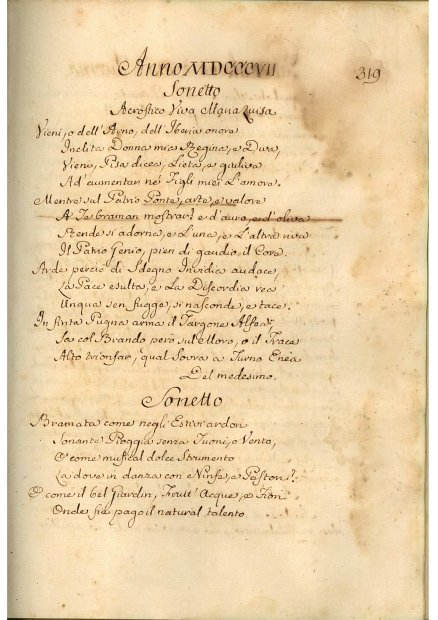 Anno MDCCCVII
319
Sonetto
Acrostico Viva Maria Luisa
Vieni, o dell'Arno, dell'Iberia onore
Inclita Donna mia Regina, e Diva,
Vieni, Pisa dicea, Lieta, e giuliva
Ad' aumentar ne' Figli miei L'amore.
Mentre sul Patrio Ponte, arte, e valore
A Te braman mostrar, e d'auro, e d'oliva
Rende si adorne, e L'una, e L'altra riva
Il Patrio Genio, pien di gaudio il Core.
Arde perciò di Sdegno Invidia audace,
La Pace esulta, e La Discordia rea
Unqua sen fugge, si nasconde, e tace.
In finta Pugna arma il Targone Alfea;
Sa col Brando però sull'Elloro, o il Trace
Alto trionfar, qual Sovra a Turno Enèa
Del medesimo.
Sonetto
Bramata come negli Estivi ardori
Sonante Pioggia senza Tuoni, o Vento,
O come musical dolce Strumento
Laddove in danza con e Ninfe, e Pastori
O come il bel Giardin, Frutt' Acque, e Fiori
Onde fia pago il natural talento